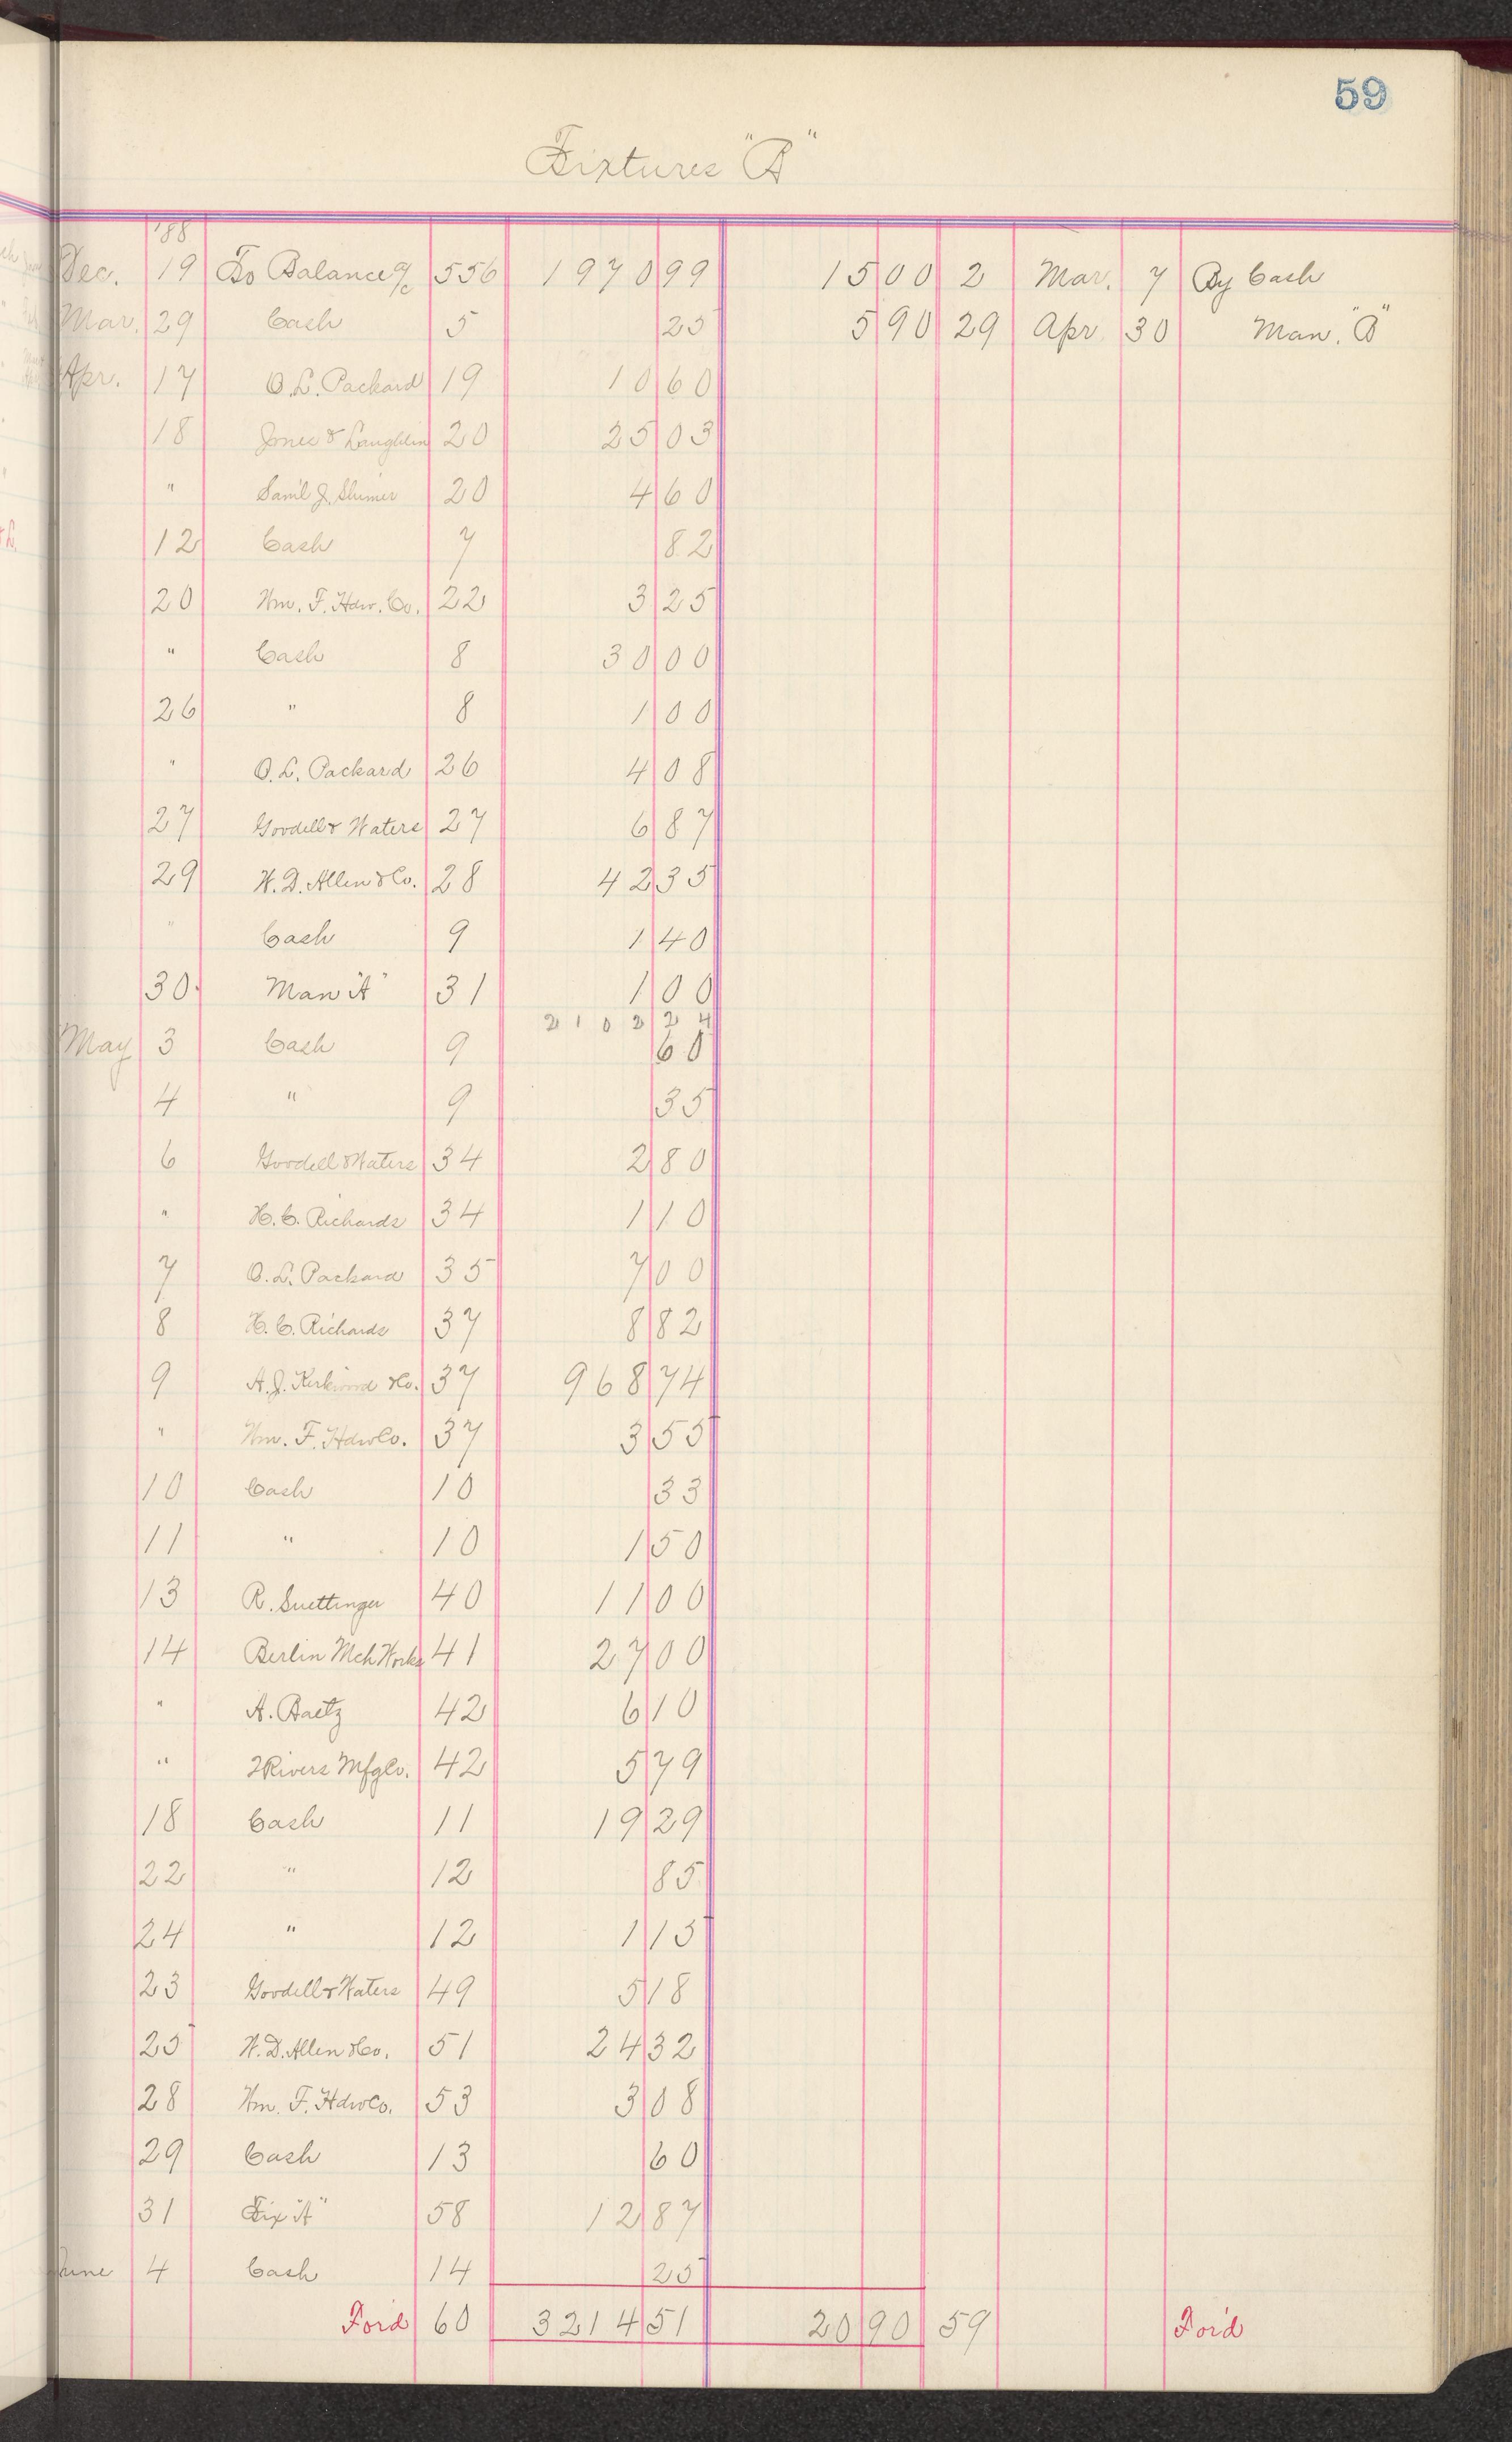 59
Fixtures "A"
'88
Dec. 19 To Balance a/c 556 1970 99 15 00 2 Mar. 7 By Cash
Mar. 29 Cash 5 25 5 90 29 Apr 30 Man. "A"
Apr. 17 O.L. Packard 19 10 60
18 Jones & Laughlin 20 25 03
" Saml J. Shimer 20 4 60
12 Cash 7 82
20 Wm. F. Hdw. Co. 22 3 25
" Cash 8 30 00
26 " 8 1 00
" O.L. Packard 26 4 08
27 Goodell & Waters 27 6 87
29 W.D. Allen & Co. 28 42 35
" Cash 9 1 40
30 Man "A" 31 1 00
2102 24
May 3 Cash 9 60
4 " 9 35
6 Goodell & Waters 34 2 80
" H.C. Richards 34 1 10
7 O.L. Packard 35 7 00
8 H.C. Richards 37 8 82
9 A.J. Kirkwood & Co. 37 968 74
" Wm. F. Hdw Co. 37 3 55
10 Cash 10 33
11 " 10 1 50
13 R. Suettinger 40 11 00
14 Berlin Mch Works 41 27 00
" A. Baetz 42 6 10
" 2 Rivers Mfg Co. 42 5 79
18 Cash 11 19 29
22 " 12 85
24 " 12 1 15
23 Goodell & Waters 49 5 18
25 W.D. Allen & Co. 51 24 32
28 Wm. F. Hdw Co. 53 3 08
29 Cash 13 60
31 Fix "A" 58 12 87
June 4 Cash 14 25
For'd 60 3214 51 20 90 59 For'd